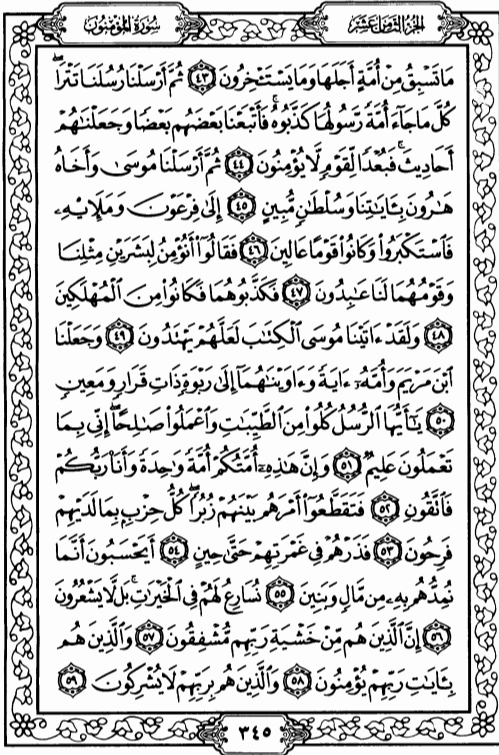 سُورَةُ المُؤْمِنُونَ
الجُزْءُ الثَّامِنَ عَشَرَ
مَا تَسْبِقُ مِنْ أُمَّةٍ أَجَلَهَا وَمَا يَسْتَـْٔخِرُونَ ٤٣ ثُمَّ أَرْسَلْنَا رُسُلَنَا تَتْرَا
كُلَّ مَا جَآءَ أُمَّةً رَّسُولُهَا كَذَّبُوهُ ۚ فَأَتْبَعْنَا بَعْضَهُم بَعْضًا وَجَعَلْنَٰهُمْ
أَحَادِيثَ ۚ فَبُعْدًا لِّقَوْمٍ لَّا يُؤْمِنُونَ ٤٤ ثُمَّ أَرْسَلْنَا مُوسَىٰ وَأَخَاهُ
هَٰرُونَ بِـَٔايَٰتِنَا وَسُلْطَٰنٍ مُّبِينٍ ٤٥ إِلَىٰ فِرْعَوْنَ وَمَلَإِي۟هِۦ
فَٱسْتَكْبَرُوا۟ وَكَانُوا۟ قَوْمًا عَالِينَ ٤٦ فَقَالُوٓا۟ أَنُؤْمِنُ لِبَشَرَيْنِ مِثْلِنَا
وَقَوْمُهُمَا لَنَا عَٰبِدُونَ ٤٧ فَكَذَّبُوهُمَا فَكَانُوا۟ مِنَ ٱلْمُهْلَكِينَ
٤٨ وَلَقَدْ ءَاتَيْنَا مُوسَى ٱلْكِتَٰبَ لَعَلَّهُمْ يَهْتَدُونَ ٤٩ وَجَعَلْنَا
ٱبْنَ مَرْيَمَ وَأُمَّهُۥٓ ءَايَةً وَءَاوَيْنَٰهُمَآ إِلَىٰ رَبْوَةٍ ذَاتِ قَرَارٍ وَمَعِينٍ
٥٠ يَٰٓأَيُّهَا ٱلرُّسُلُ كُلُوا۟ مِنَ ٱلطَّيِّبَٰتِ وَٱعْمَلُوا۟ صَٰلِحًا ۖ إِنِّى بِمَا
تَعْمَلُونَ عَلِيمٌ ٥١ وَإِنَّ هَٰذِهِۦٓ أُمَّتُكُمْ أُمَّةً وَٰحِدَةً وَأَنَا۠ رَبُّكُمْ
فَٱتَّقُونِ ٥٢ فَتَقَطَّعُوٓا۟ أَمْرَهُم بَيْنَهُمْ زُبُرًا ۖ كُلُّ حِزْبٍۭ بِمَا لَدَيْهِمْ
فَرِحُونَ ٥٣ فَذَرْهُمْ فِى غَمْرَتِهِمْ حَتَّىٰ حِينٍ ٥٤ أَيَحْسَبُونَ أَنَّمَا
نُمِدُّهُم بِهِۦ مِن مَّالٍ وَبَنِينَ ٥٥ نُسَارِعُ لَهُمْ فِى ٱلْخَيْرَٰتِ ۚ بَل لَّا يَشْعُرُونَ
٥٦ إِنَّ ٱلَّذِينَ هُم مِّنْ خَشْيَةِ رَبِّهِم مُّشْفِقُونَ ٥٧ وَٱلَّذِينَ هُم
بِـَٔايَٰتِ رَبِّهِمْ يُؤْمِنُونَ ٥٨ وَٱلَّذِينَ هُم بِرَبِّهِمْ لَا يُشْرِكُونَ ٥٩
٣٤٥